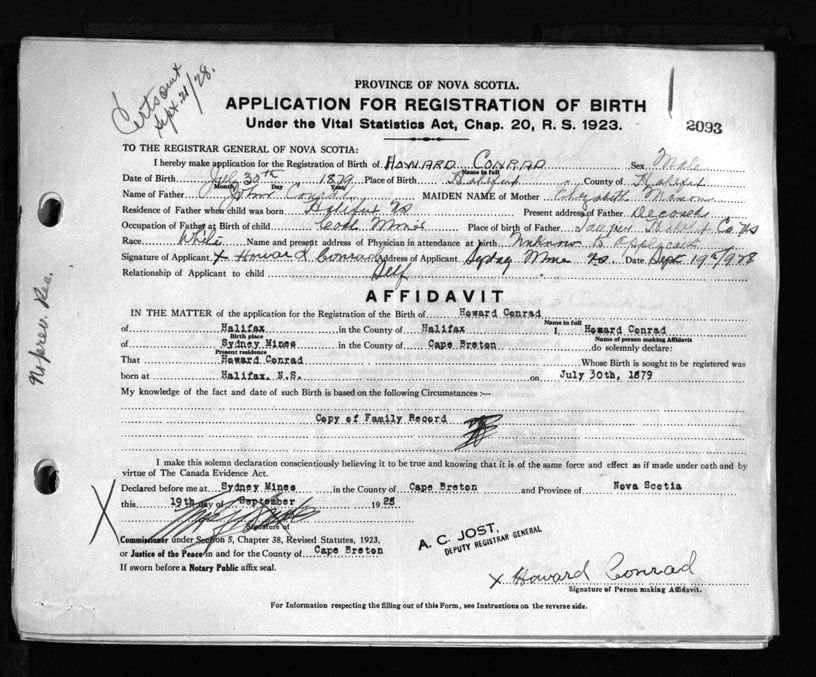 Cert sent
Sept. 21/28.
PROVINCE OF NOVA SCOTIA.
APPLICATION FOR REGISTRATION OF BIRTH
Under the Vital Statistics Act, Chap. 20, R. S. 1923.
2093
TO THE REGISTRAR GENERAL OF NOVA SCOTIA:
I hereby make application for the Registration of Birth of HOWARD CONRAD Sex Male
Name in full
Date of Birth July 30th 1879 Place of Birth Halifax County of Halifax
Month Day Year
Name of Father Conrad MAIDEN NAME of Mother Elizabeth
Residence of Father when child was born Halifax NS Present address of Father
Occupation of Father at Birth of child Place of birth of Father Co. NS
Race White Name and present address of Physician in attendance at birth Unknown to Applicant
Signature of Applicant X Howard Conrad Address of Applicant Sydney Mines NS. Date Sept 19th/1928
Relationship of Applicant to child Self
AFFIDAVIT
IN THE MATTER of the application for the Registration of the Birth of Howard Conrad
Name in full
of Halifax in the County of Halifax I, Howard Conrad
Birth place Name of person making Affidavit
of Sydney Mines in the County of Cape Breton do solemnly declare:
Present residence
That Howard Conrad Whose Birth is sought to be registered was
born at Halifax, N.S. on July 30th, 1879
My knowledge of the fact and date of such Birth is based on the following Circumstances :—
Copy of Family Record
I make this solemn declaration conscientiously believing it to be true and knowing that it is of the same force and effect as if made under oath and by
virtue of The Canada Evidence Act.
Declared before me at Sydney Mines in the County of Cape Breton and Province of Nova Scotia
this 19th day of September 1928
Signature of
Commissioner under Section 5, Chapter 38, Revised Statutes, 1923,
or Justice of the Peace in and for the County of Cape Breton
If sworn before a Notary Public affix seal.
A. C. JOST,
DEPUTY REGISTRAR GENERAL
X Howard Conrad
Signature of Person making Affidavit.
For Information respecting the filling out of this Form, see Instructions on the reverse side.
No prev. Rec.